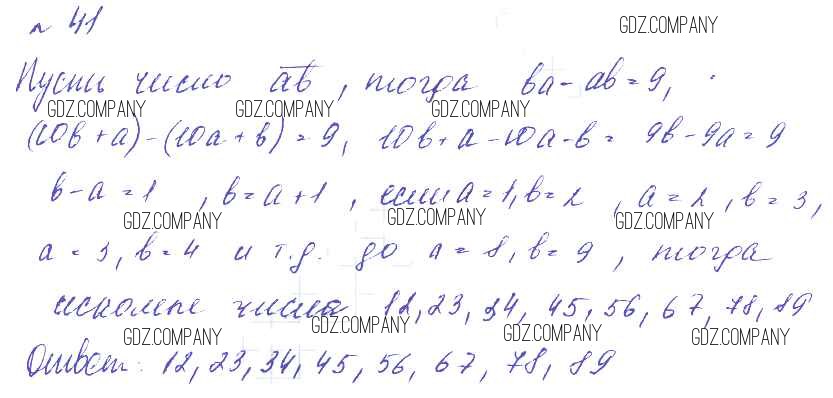 № 41
GDZ.COMPANY
Пусть число ab, тогда ba - ab = 9,
GDZ.COMPANY GDZ.COMPANY GDZ.COMPANY
(10b + a) - (10a + b) = 9, 10b + a - 10a - b = 9b - 9a = 9
b - a = 1, b = a + 1, если a = 1, b = 2, a = 2, b = 3,
GDZ.COMPANY GDZ.COMPANY GDZ.COMPANY
a = 3, b = 4 и т.д. до a = 8, b = 9, тогда
искомые числа 12, 23, 34, 45, 56, 67, 78, 89
GDZ.COMPANY GDZ.COMPANY GDZ.COMPANY GDZ.COMPANY
Ответ: 12, 23, 34, 45, 56, 67, 78, 89